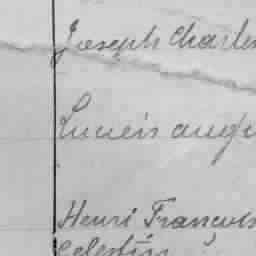 Joseph Charles
Lucien augu
Henri François
Celestin